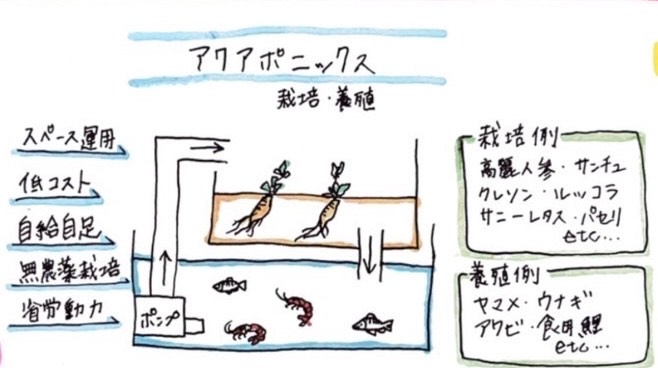 アクアポニックス
栽培・養殖
スペース運用
低コスト
自給自足
無農薬栽培
省労動力
ポンプ
栽培例
高麗人参・サンチュ
クレソン・ルッコラ
サニーレタス・パセリ
etc...
養殖例
ヤマメ・ウナギ
アワビ・食用鯉
etc...